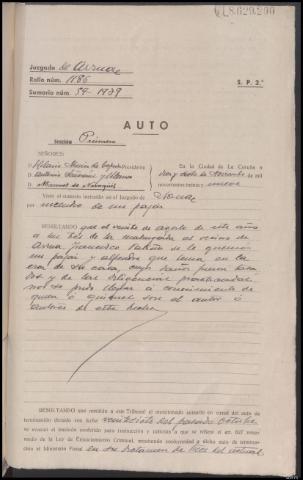 Juzgado de Arzua
Rollo núm. 1186
Sumario núm. 59-1939
S. P. 2.ª
AUTO
Sección Primera
SEÑORES:
D. Presidente
D. Antonio
D. Manuel de
En la Ciudad de La Coruña a
diez y siete de Noviembre de mil
novecientos treinta y nueve
Visto el sumario instruido en el Juzgado de Arzua
por incendio de un pajar
RESULTANDO que el veinte de agosto de este año
a las tres de la madrugada al vecino de
Arzua Francisco se le quemó
un pajar y alpendre que tenia en la
era de su casa, cuyos daños fueron tasa
dos y de las diligencias practicadas
no se pudo llegar a conocimiento de
quien o quienes son el autor o
autores de este hecho.
RESULTANDO que remitido a este Tribunal el mencionado sumario en virtud del auto de
terminación dictado con fecha veintisiete del pasado Octubre
se evacuó el traslado conferido para instrucción y calificar a que se refiere el art. 627 refor-
mado de la Ley de Enjuiciamiento Criminal, emitiendo conformidad a dicho auto de termina-
ción el Ministerio Fiscal en su dictamen de del actual